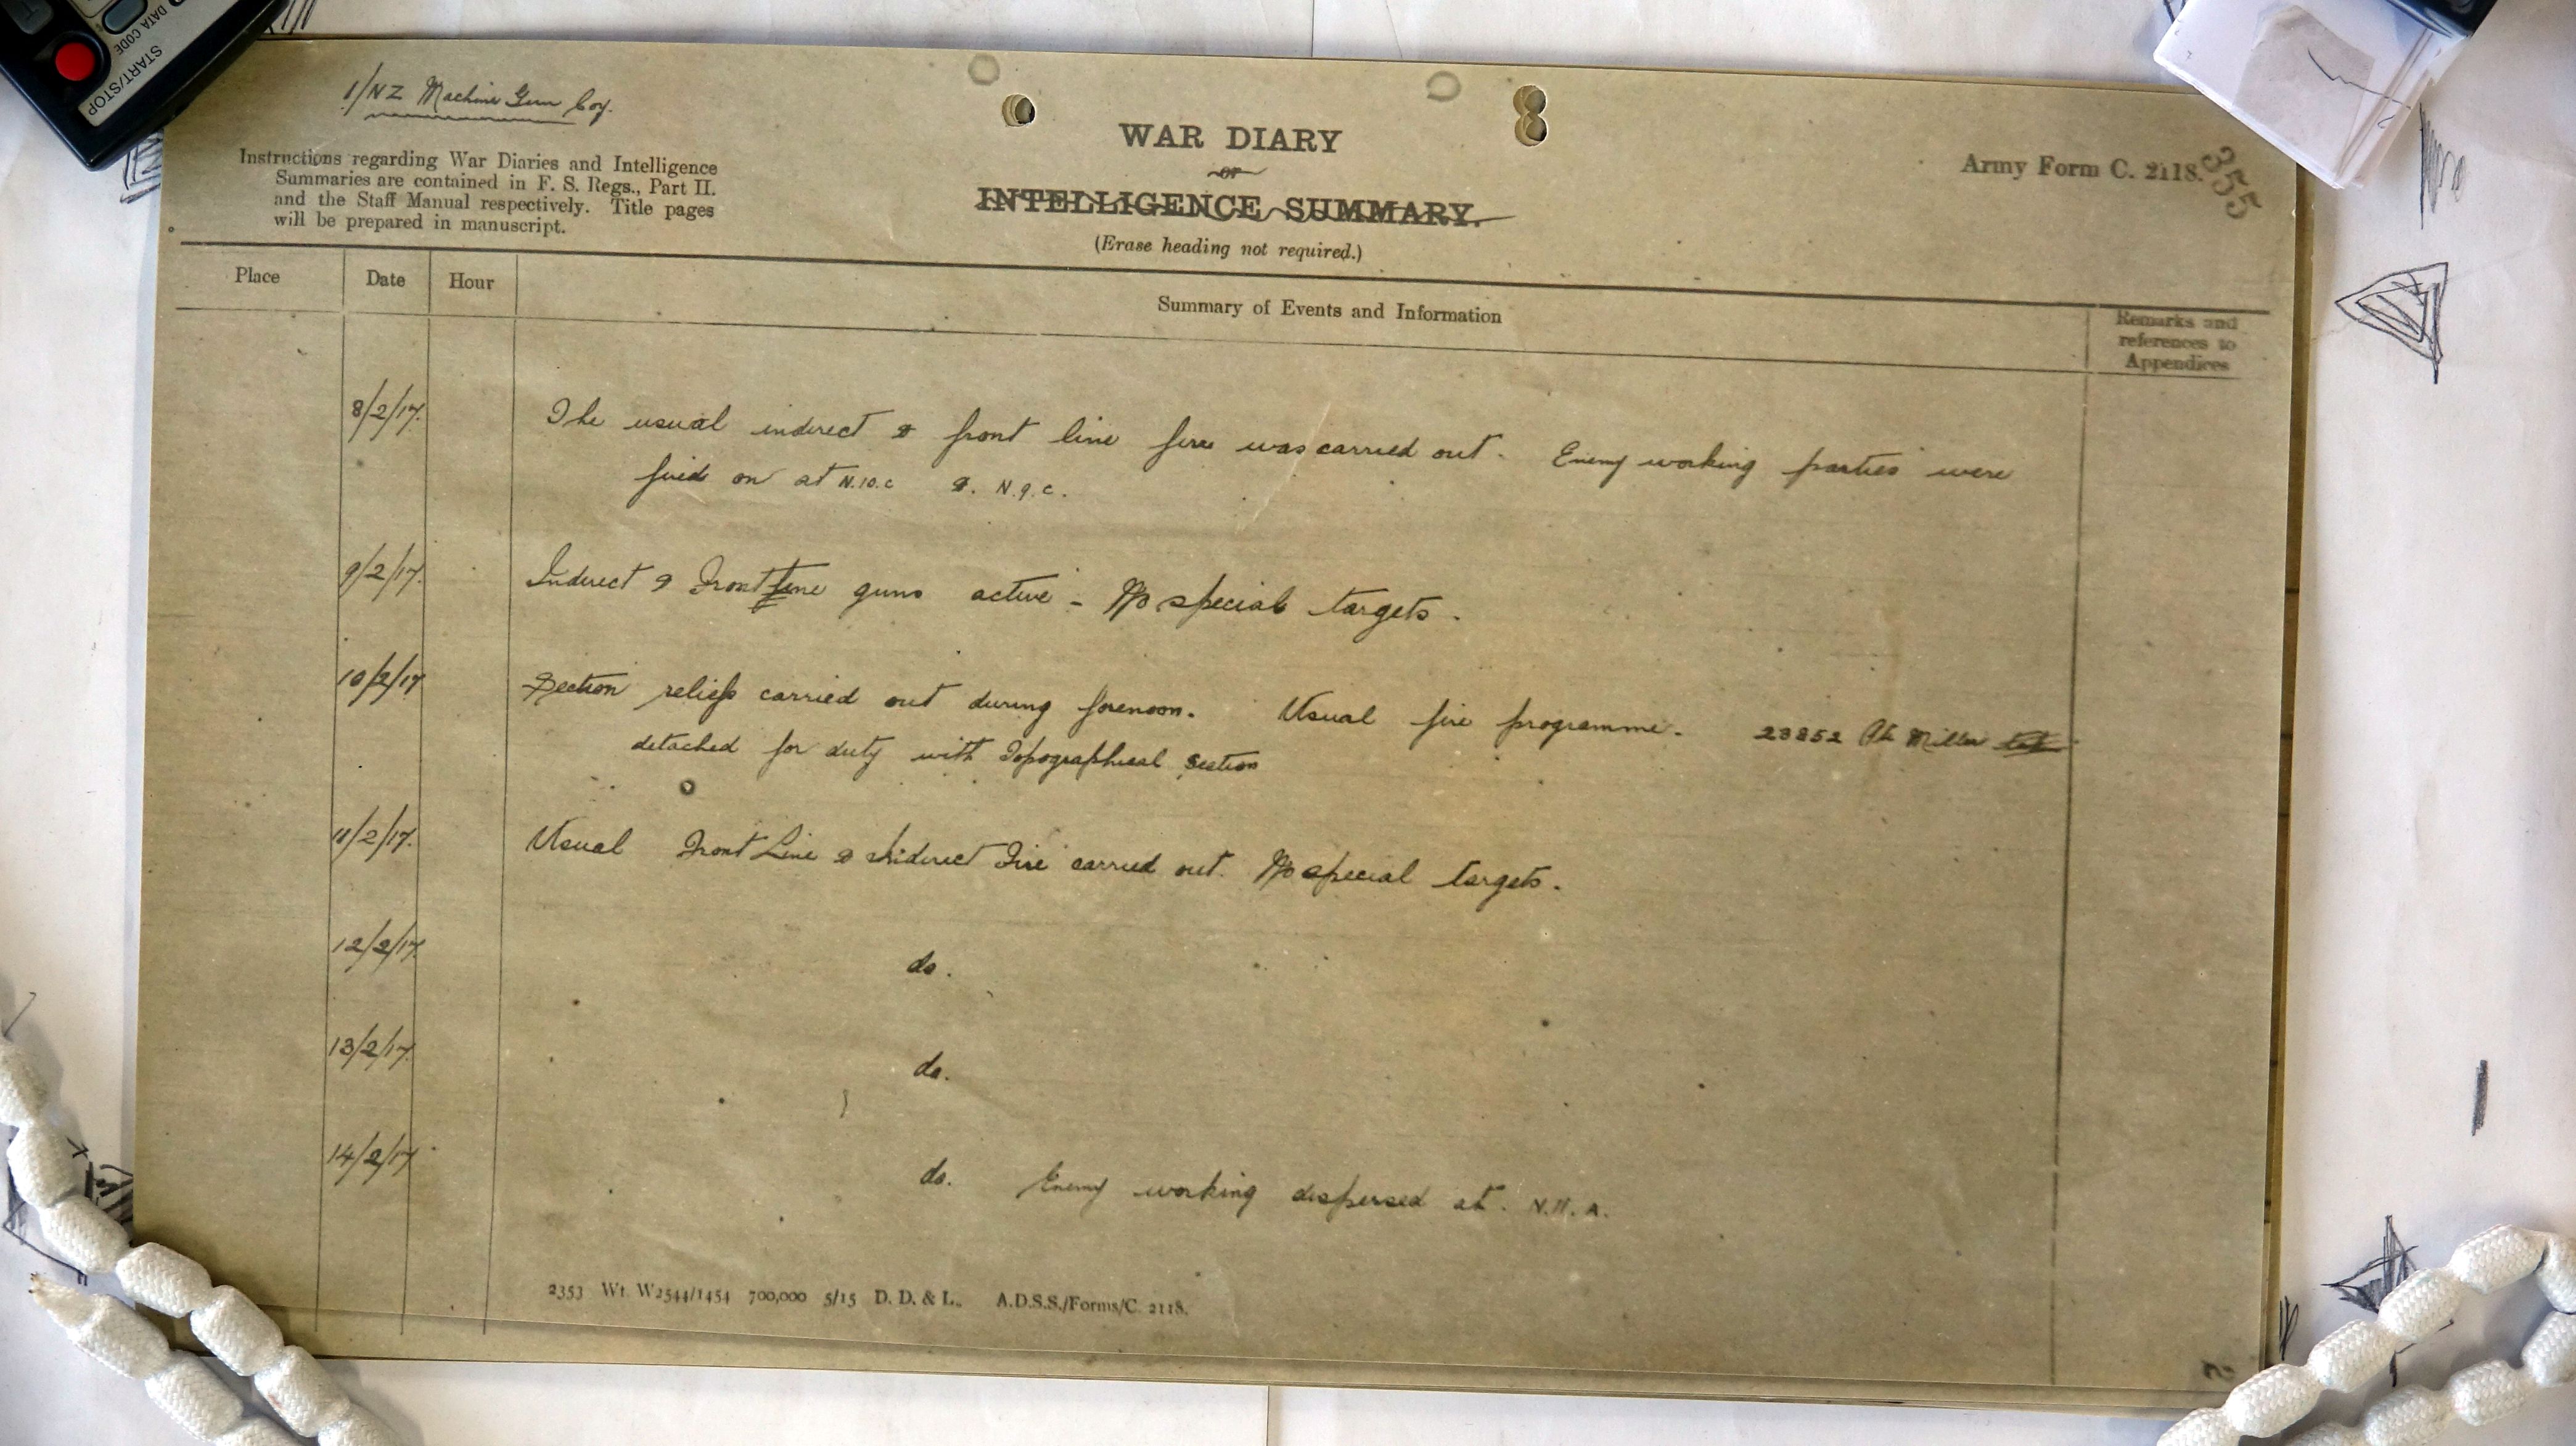 DATA CODE
START/STOP
1/NZ Machine Gun Coy.
Instructions regarding War Diaries and Intelligence
Summaries are contained in F. S. Regs., Part II.
and the Staff Manual respectively. Title pages
will be prepared in manuscript.
WAR DIARY
or
INTELLIGENCE SUMMARY.
(Erase heading not required.)
Army Form C. 2118.
355
Place Date Hour Summary of Events and Information
Remarks and
references to
Appendices
8/2/17. The usual indirect & front line fire was carried out. Enemy working parties were
fired on at N.10.c & N.9.c.
9/2/17. Indirect & Front Line guns active - No special targets.
10/2/17 Section reliefs carried out during forenoon. Usual fire programme. 23852 Pte Miller
detached for duty with Topographical Section
11/2/17. Usual Front Line & Indirect Fire carried out. No special targets.
12/2/17. do.
13/2/17. do.
14/2/17. do. Enemy working dispersed at. N.11.A.
2353 Wt. W2544/1454 700,000 5/15 D. D. & L. A.D.S.S./Forms/C. 2118.